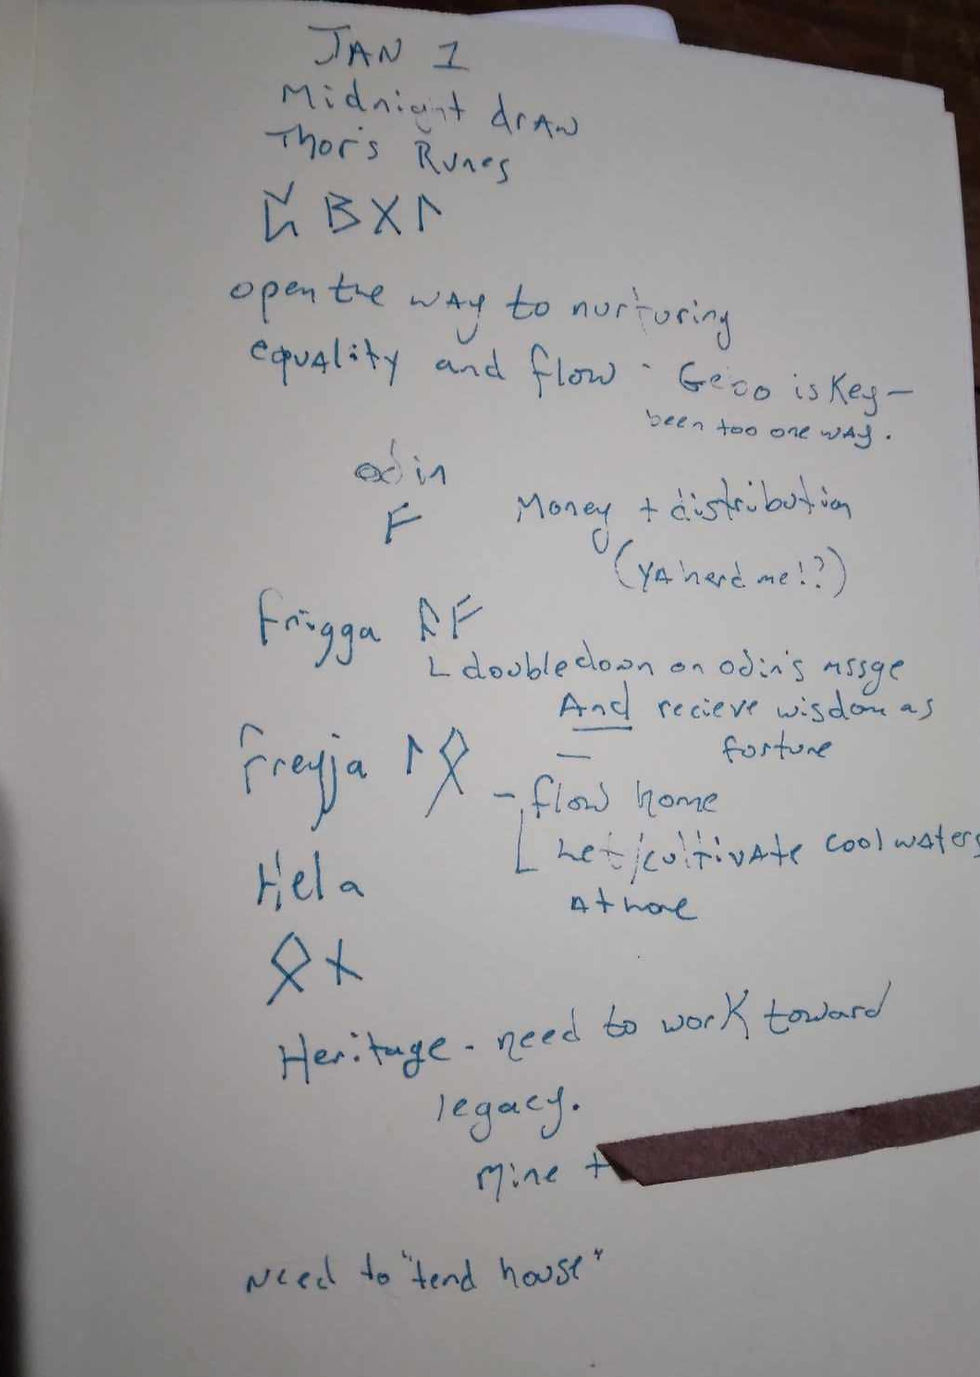 JAN 1
Midnight drAW
Thor's Runes
ᛈ ᛒ ᚷ ᛚ
open the wAy to nurturing
equAlity and flow - Gebo is Key -
been too one wAy.
odin
ᚠ Money + distribution
(YA herd me!?)
Frigga ᚠ
L doubledown on odin's mssge
And recieve wisdom as
fortune
Freyja ᛚ ᛟ - flow home
Let/cultivAte cool waters
At home
Hela
ᛟ ᚾ
Heritage - need to work toward
legacy.
Mine +
Need to "tend house"